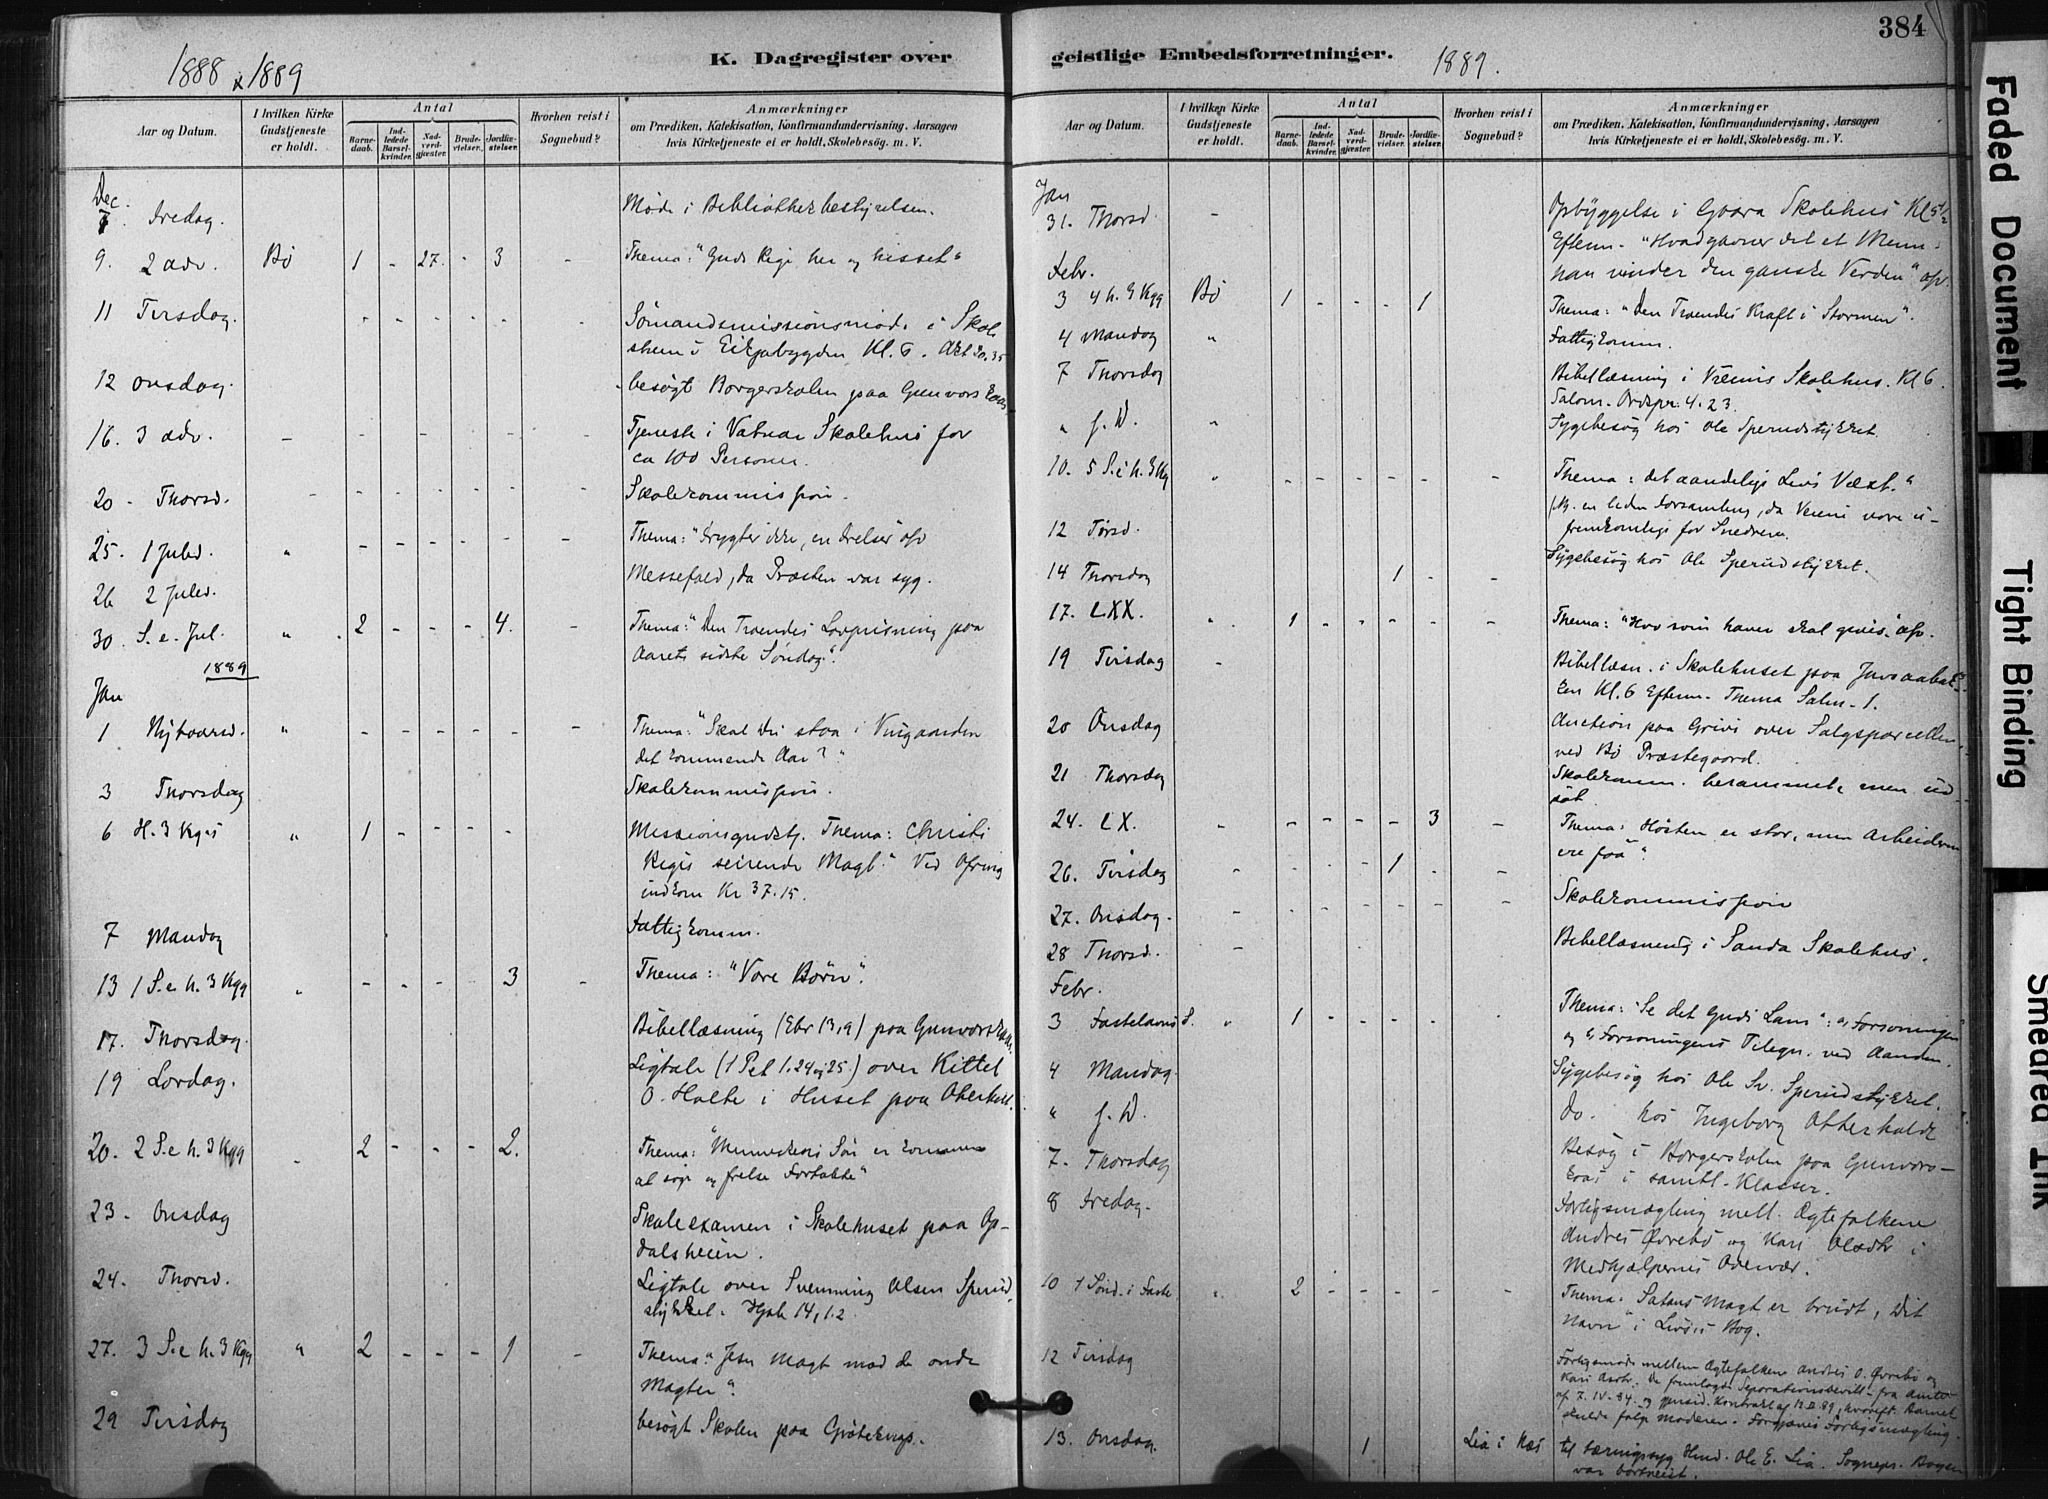 384
1888 & 1889
K. Dagregister over
Aar og Datum.
I hvilken Kirke Gudstjeneste er holdt.
Antal
Barnedaab.
Indledede Barselkvinder.
Nadverdgjæster.
Brudevielser.
Jordfæstelser.
Hvorhen reist i Sognebud?
Anmærkninger
om Prædiken, Katekisation, Konfirmandundervisning, Aarsagen
hvis Kirketjeneste ei er holdt, Skolebesøg. m. V.
Dec.
7 Fredag. Møde i Bibliothekbestyrelsen.
9. 2 Adv. Bø 1 - 27. - 3 - Thema: "Guds Rige her og hisset"
11 Tirsdag. - - - - - - Sømandsmissionsmøde i Skole
Kl. 6.
12 Onsdag. besøgt Borgerskolen paa Gunvors Eaas
16. 3 Adv. - - - - - - - Tjeneste i Vatnar Skolehus for
ca 100 Personer.
20 - Thorsd. - - - - - - - Skolekommission.
25. 1 Juled. " - - - - - - Thema: "Frygter ikke, en Frelser osv
26 2 Juled. Messefald, da Præsten var syg.
30. S. e. Jul. " 2 - - - 4. - Thema: "Den Troendes Lovprisning paa
Aarets sidste Søndag".
1889
Jan
1 Nytaarsd. " - - - - - - Thema: "Skal Du staa i Vingaarden
det kommende Aar?"
3 Thorsdag Skolekommission.
6 H. 3 Kgs " 1 - - - - Missionsgudstj. Thema: Christi
Riges seirende Magt." Ved Ofring
indkom Kr 37.15.
7 Mandag Fattigkomm.
13 1 S. e. h. 3 Kgg " - - - - 3 - Thema: "Vore Børn".
17. Thorsdag. Bibellæsning (Ebr 13,9) paa
19 Lørdag. Ligtale (1 Pet 1. 24 og 25.) over Kittel
O. Holte i Huset paa
20. 2 S. e h. 3 Kgg - 2 - - - 2. Thema: "Menneskens Søn er kommen
at søge og frelse Fortabte"
23. Onsdag Skoleexamen i Skolehuset paa Op-
dalsheien.
24. Thorsd. Ligtale over Svenning Olsen Sperud
stykket. Hjob 14, 1.2
27. 3 S. e h. 3 Kgg " 2 - - - 1 - Thema: "Jesu Magt mod de onde
Magter".
29 Tirsdag besøgt Skolen paa
geistlige Embedsforretninger.
1889.
Aar og Datum.
I hvilken Kirke Gudstjeneste er holdt.
Antal
Barnedaab.
Indledede Barselkvinder.
Nadverdgjæster.
Brudevielser.
Jordfæstelser.
Hvorhen reist i Sognebud?
Anmærkninger
om Prædiken, Katekisation, Konfirmandundervisning, Aarsagen
hvis Kirketjeneste ei er holdt, Skolebesøg. m. V.
Jan
31. Thorsd. - Opbyggelse i Gvara Skolehus Kl 5 1/2
Efterm. "Hvad gavner det et Menn.
han vinder den ganske Verden" osv.
Febr.
3 4 h. 3 Kgg Bø 1 - - - 1 Thema: "Den Troendes Kraft i Stormen".
4 Mandag " Fattigkomm.
7 Thorsdag Bibellæsning i Skolehus. Kl 6.
Salom. Ordspr. 4. 23.
" s. D. " Sygebesøg hos Ole Sperudstykket.
10. 5 S. e h. 3 Kg " - - - - - - Thema: det aandelige Livs Væxt."
en liden Forsamling, da Veiene vare u-
fremkomlige for Snedrev.
12 Tirsd. Sygebesøg hos Ole Sperudstykket.
14 Thorsdag 1 - -
17. LXX. " 1 - - - - - Thema: "Hvo som haver skal gives" osv.
19 Tirsdag - Bibellæsn. i Skolehuset paa
Kl. 6 Efterm. Thema Salm. 1.
20 Onsdag Auction paa Grivi over Salgsparcellen
ved Bø Præstegaard.
21 Thorsdag Skolekomm. berammet, men ud
sat.
24. LX. - - - - - 3 - Thema: Høsten er stor, men Arbeiderne
ere faa".
26. Tirsdag - - - - 1 - -
27. Onsdag. - - - - - - - Skolekommission
28 Thorsd. - Bibellæsning i Sanda Skolehus.
Febr.
3 Fastelavns S. " 1 - - - - - Thema: "Se det Guds Lam": a, Forsoningen
og b, Forsoningens Tilegn. ved Aanden.
4 Mandag. Sygebesøg hos Ole Sv. Sperudstykket.
" s. D. do. hos Ingeborg Otterholdt
7. Thorsdag Besøg i Borgerskolen paa Gunvors-
Eaas i samtl. Klasser.
8 Fredag. Forligsmægling mell. Ægtefolkene
Andres Øvrebø og Kari Olsdtr i
Medhjælpernes Overvær.
10 1 Sønd. i Faste " 2 - - - - - Thema: Satans Magt er brudt, Dit
Navn i Livsens Bog.
12 Tirsdag Forligsmøde mellem Ægtefolkene Andres O. Øvrebø og
Kari
13. Onsdag. 1 Lia i Næs til Hmd. Ole E. Lia. Sognepr.
var bortreist.
Faded Document
Tight Binding
Smeared Ink